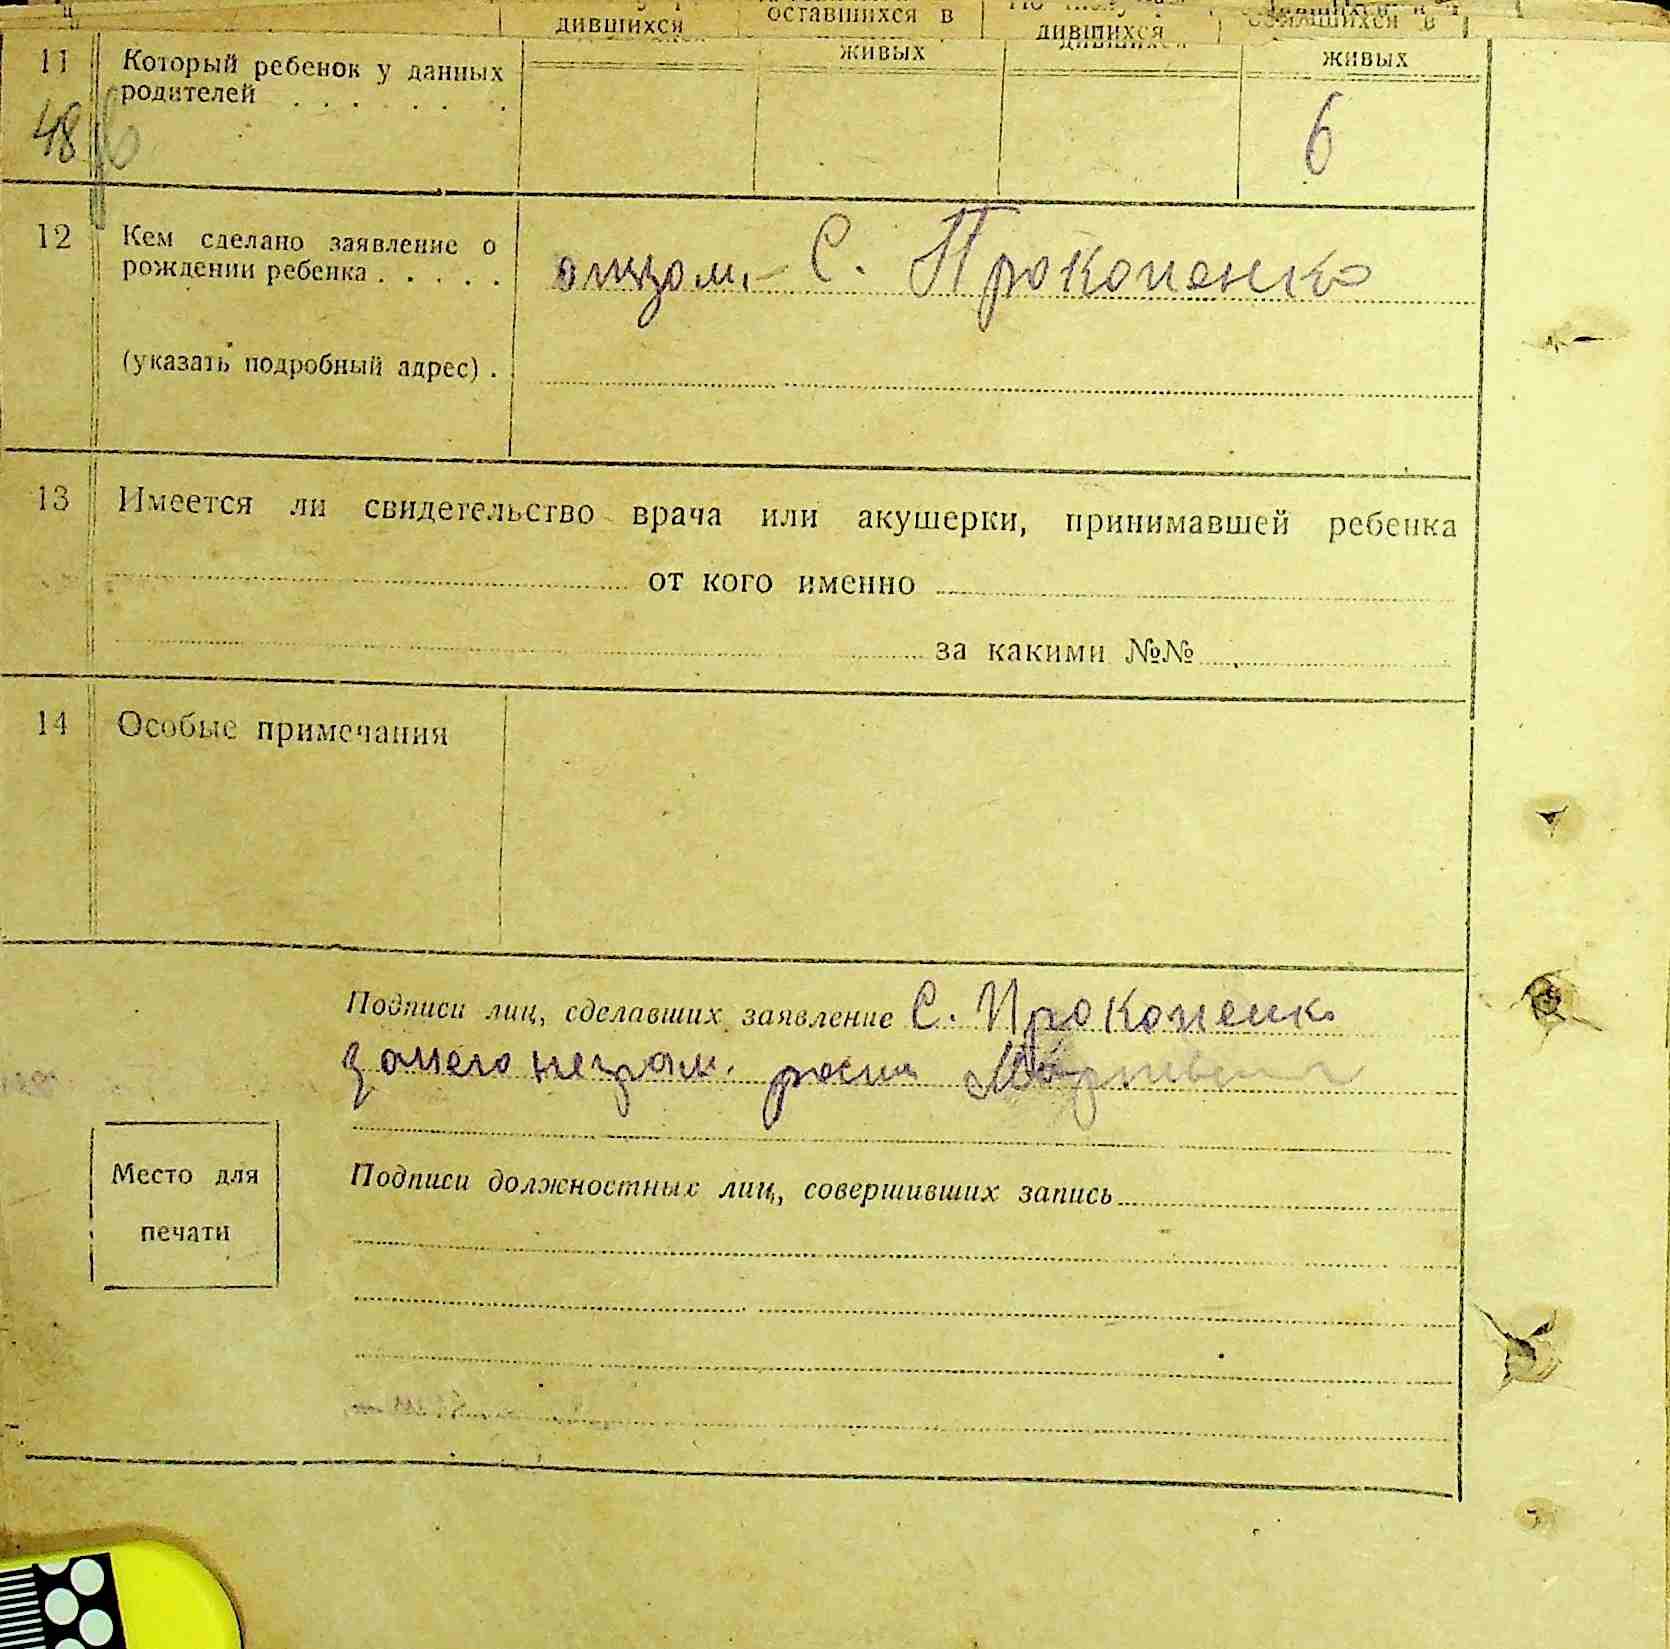 дившихся оставшихся в дившихся
живых живых
11 Который ребенок у данных
родителей . . . . . .
48 6
12 Кем сделано заявление о
рождении ребенка . . . . . отцом. – С. Прокопенко
(указать подробный адрес) .
13 Имеется ли свидетельство врача или акушерки, принимавшей ребенка
от кого именно
за какими №№
14 Особые примечания
Подписи лиц, сделавших заявление С. Прокопенко
за него неграм. росп
Место для
печати
Подписи должностных лиц, совершивших запись